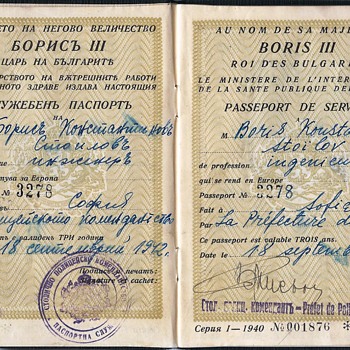 ЕТО НА НЕГОВО ВЕЛИЧЕСТВО
БОРИСЪ III
ЦАРЬ НА БЪЛГАРИТѢ
ЕРСТВОТО НА ВѪТРЕШНИТѢ РАБОТИ
НОТО ЗДРАВЕ ИЗДАВА НАСТОЯЩИЯ
УЖЕБЕНЪ ПАСПОРТЪ
Борисъ Константиновъ
Стоиловъ
инженеръ
тува за Европа
№ 3278
София
комендантство
валиденъ ТРИ години
18 септемврий 1942
Подпис
печатъ:
Signature
cachet:
ПАСПОРТНА СЛУ
AU NOM DE SA MAJE
BORIS III
ROI DES BULGAR
LE MINISTERE DE L'INTER
DE LA SANTE PUBLIQUE DEL
PASSEPORT DE SERV
M Boris Konsta
Stoilov
de profession ingenieu
qui se rend en Europe
Passeport № 3278
Fait à Sofia
Par La Préfecture d
Ce passeport est valable TROIS ans.
Du 18 septemb
Préfet de Pol
Серия I—1940 № 001876